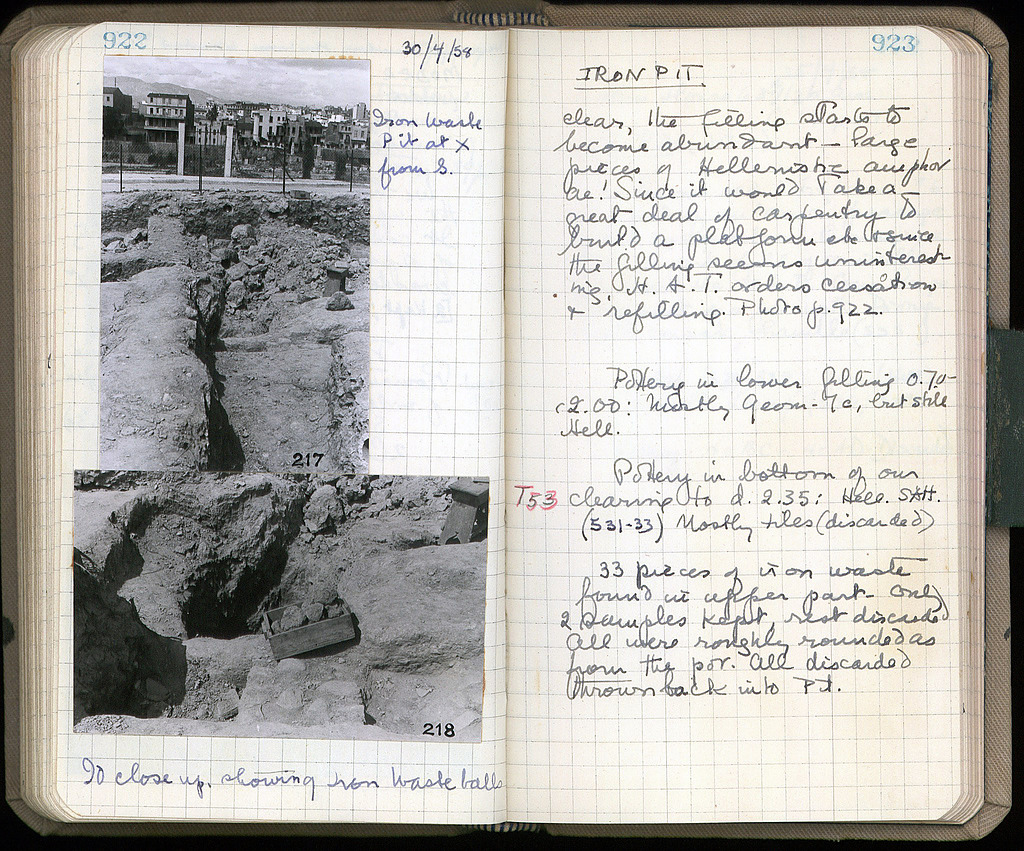 922
30/4/58
Iron Waste
Pit at X
from S.
217
218
Id close up, showing iron waste balls
923
IRON PIT
clear, the filling starts to
become abundant – large
pieces of Hellenistic amphor
ae! Since it would take a
great deal of carpentry to
build a platform etc & since
the filling seems uninterest
ing, H. A. T. orders cessation
& refilling. Photo p. 922.
Pottery in lower filling 0.70-
c2.00: Mostly Geom-7c, but still
Hell.
Pottery in bottom of our
T53 clearing to d. 2.35: Hell. SAH.
(531-33) Mostly tiles (discarded)
33 pieces of iron waste
found in upper part – only
2 samples kept, rest discarded
All were roughly rounded as
from the pot. All discarded
thrown back into Pit.